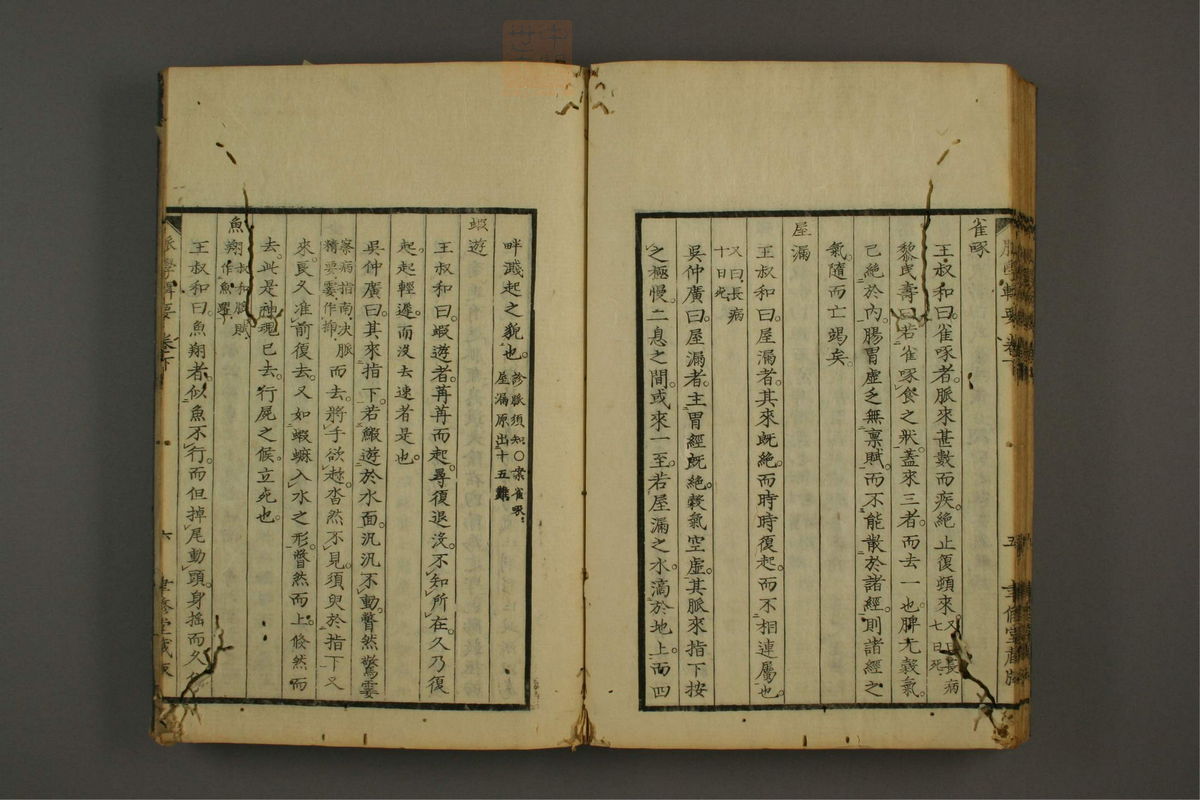 雀啄
王叔和曰。雀啄者。脈來甚數而疾。絕止復頓來。又曰長病七日死
黎民壽曰。若雀啄食之狀。蓋來三者。而去一也。脾无穀氣。
已絕於內。腸胃虛乏。無禀賦。而不能散於諸經。則諸經之
氣。隨而亡竭矣。
屋漏
王叔和曰。屋漏者。其來既絕。而時時復起。而不相連屬也。
又曰長病十日死
吳仲廣曰。屋漏者。主胃經既絕。穀氣空虛。其脈來指下按
之極慢。二息之間。或來一至。若屋漏之水。滴於地上。而四
畔濺起之貌也。診脈須知○案雀啄。屋漏原出十五難
蝦遊
王叔和曰。蝦遊者。苒苒而起。尋復退沒。不知所在。久乃復
起。起輕遲。而沒去速者是也。
吳仲廣曰。其來指下。若鰕遊於水面。沉沉不動。瞥然驚霎
察病指南。決脈精要霎作掉而去。將手欲趂。杳然不見。須臾於指下又
來。良久准前復去。又如蝦䗫入水之形。瞥然而上。倐然而
去。此是神魂已去。行屍之候。立死也。
魚翔叔和脈賦作魚躍
王叔和曰。魚翔者。似魚不行。而但掉尾動頭。身搖而久
脈學輯要 卷下 五 聿修堂藏版
脈學輯要 卷下 六 聿修堂藏版